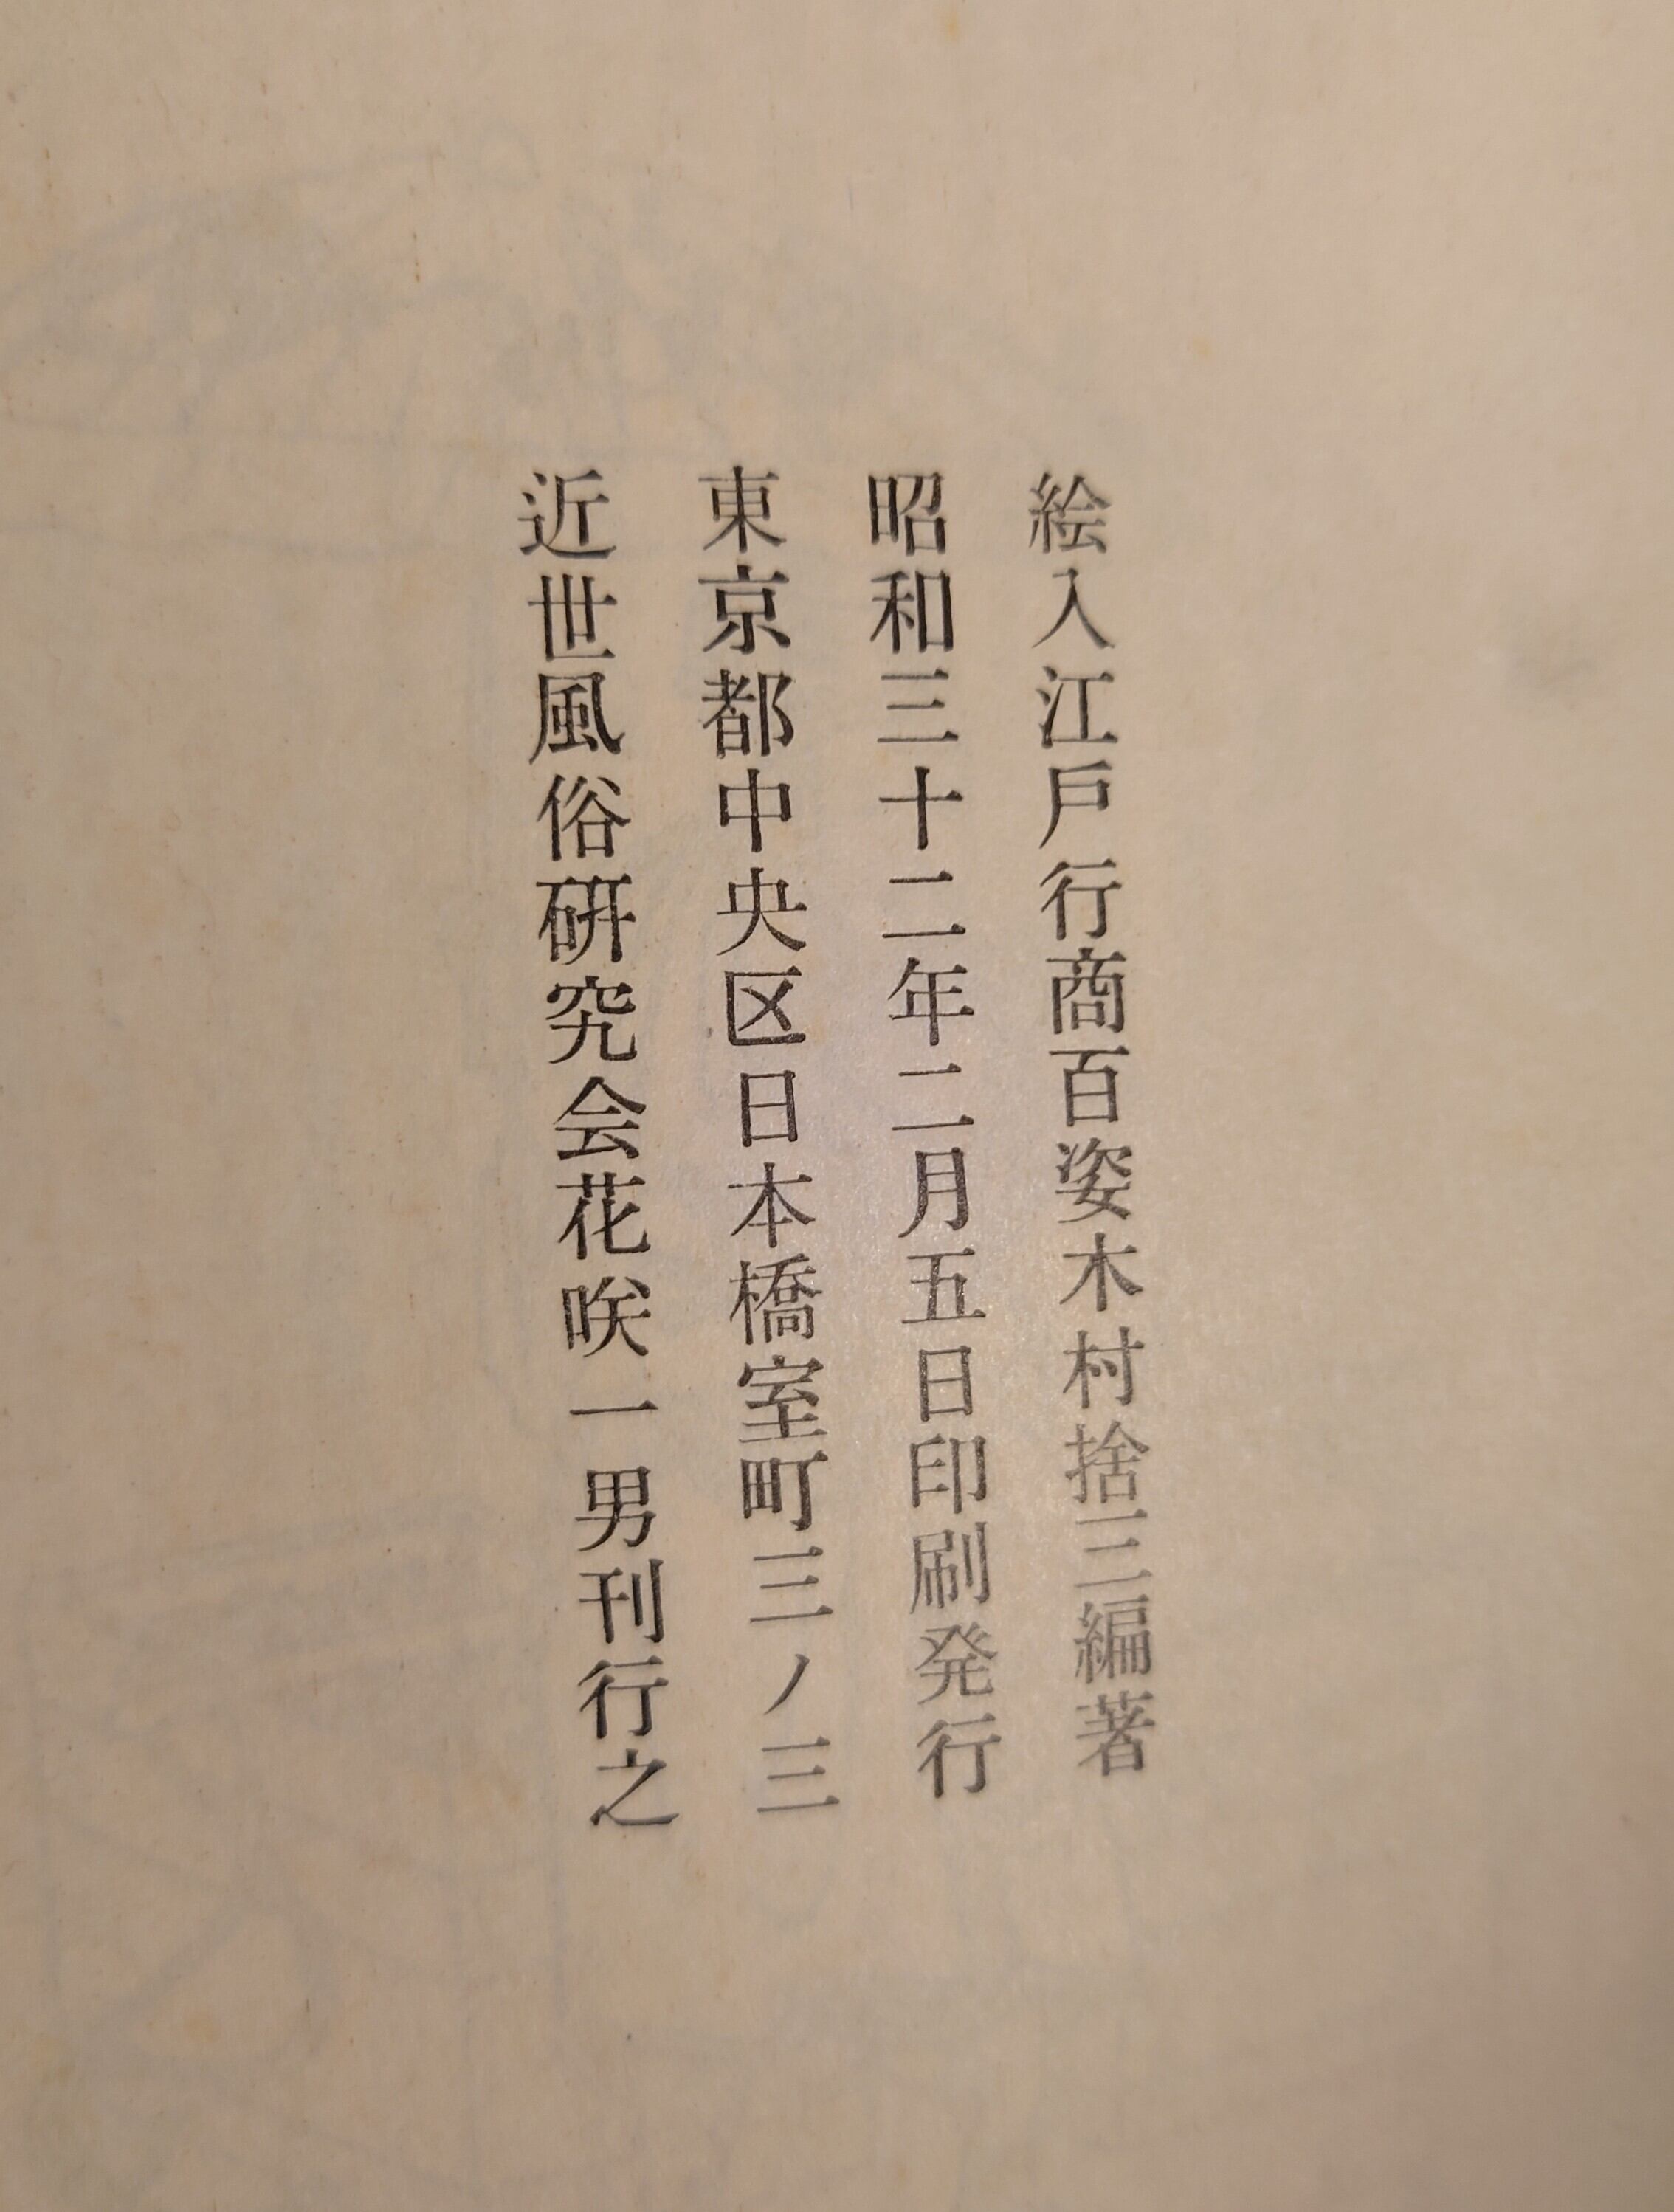 絵入江戸行商百姿木村捨三編著
昭和三十二年二月五日印刷発行
東京都中央区日本橋室町三ノ三
近世風俗研究会花咲一男刊行之